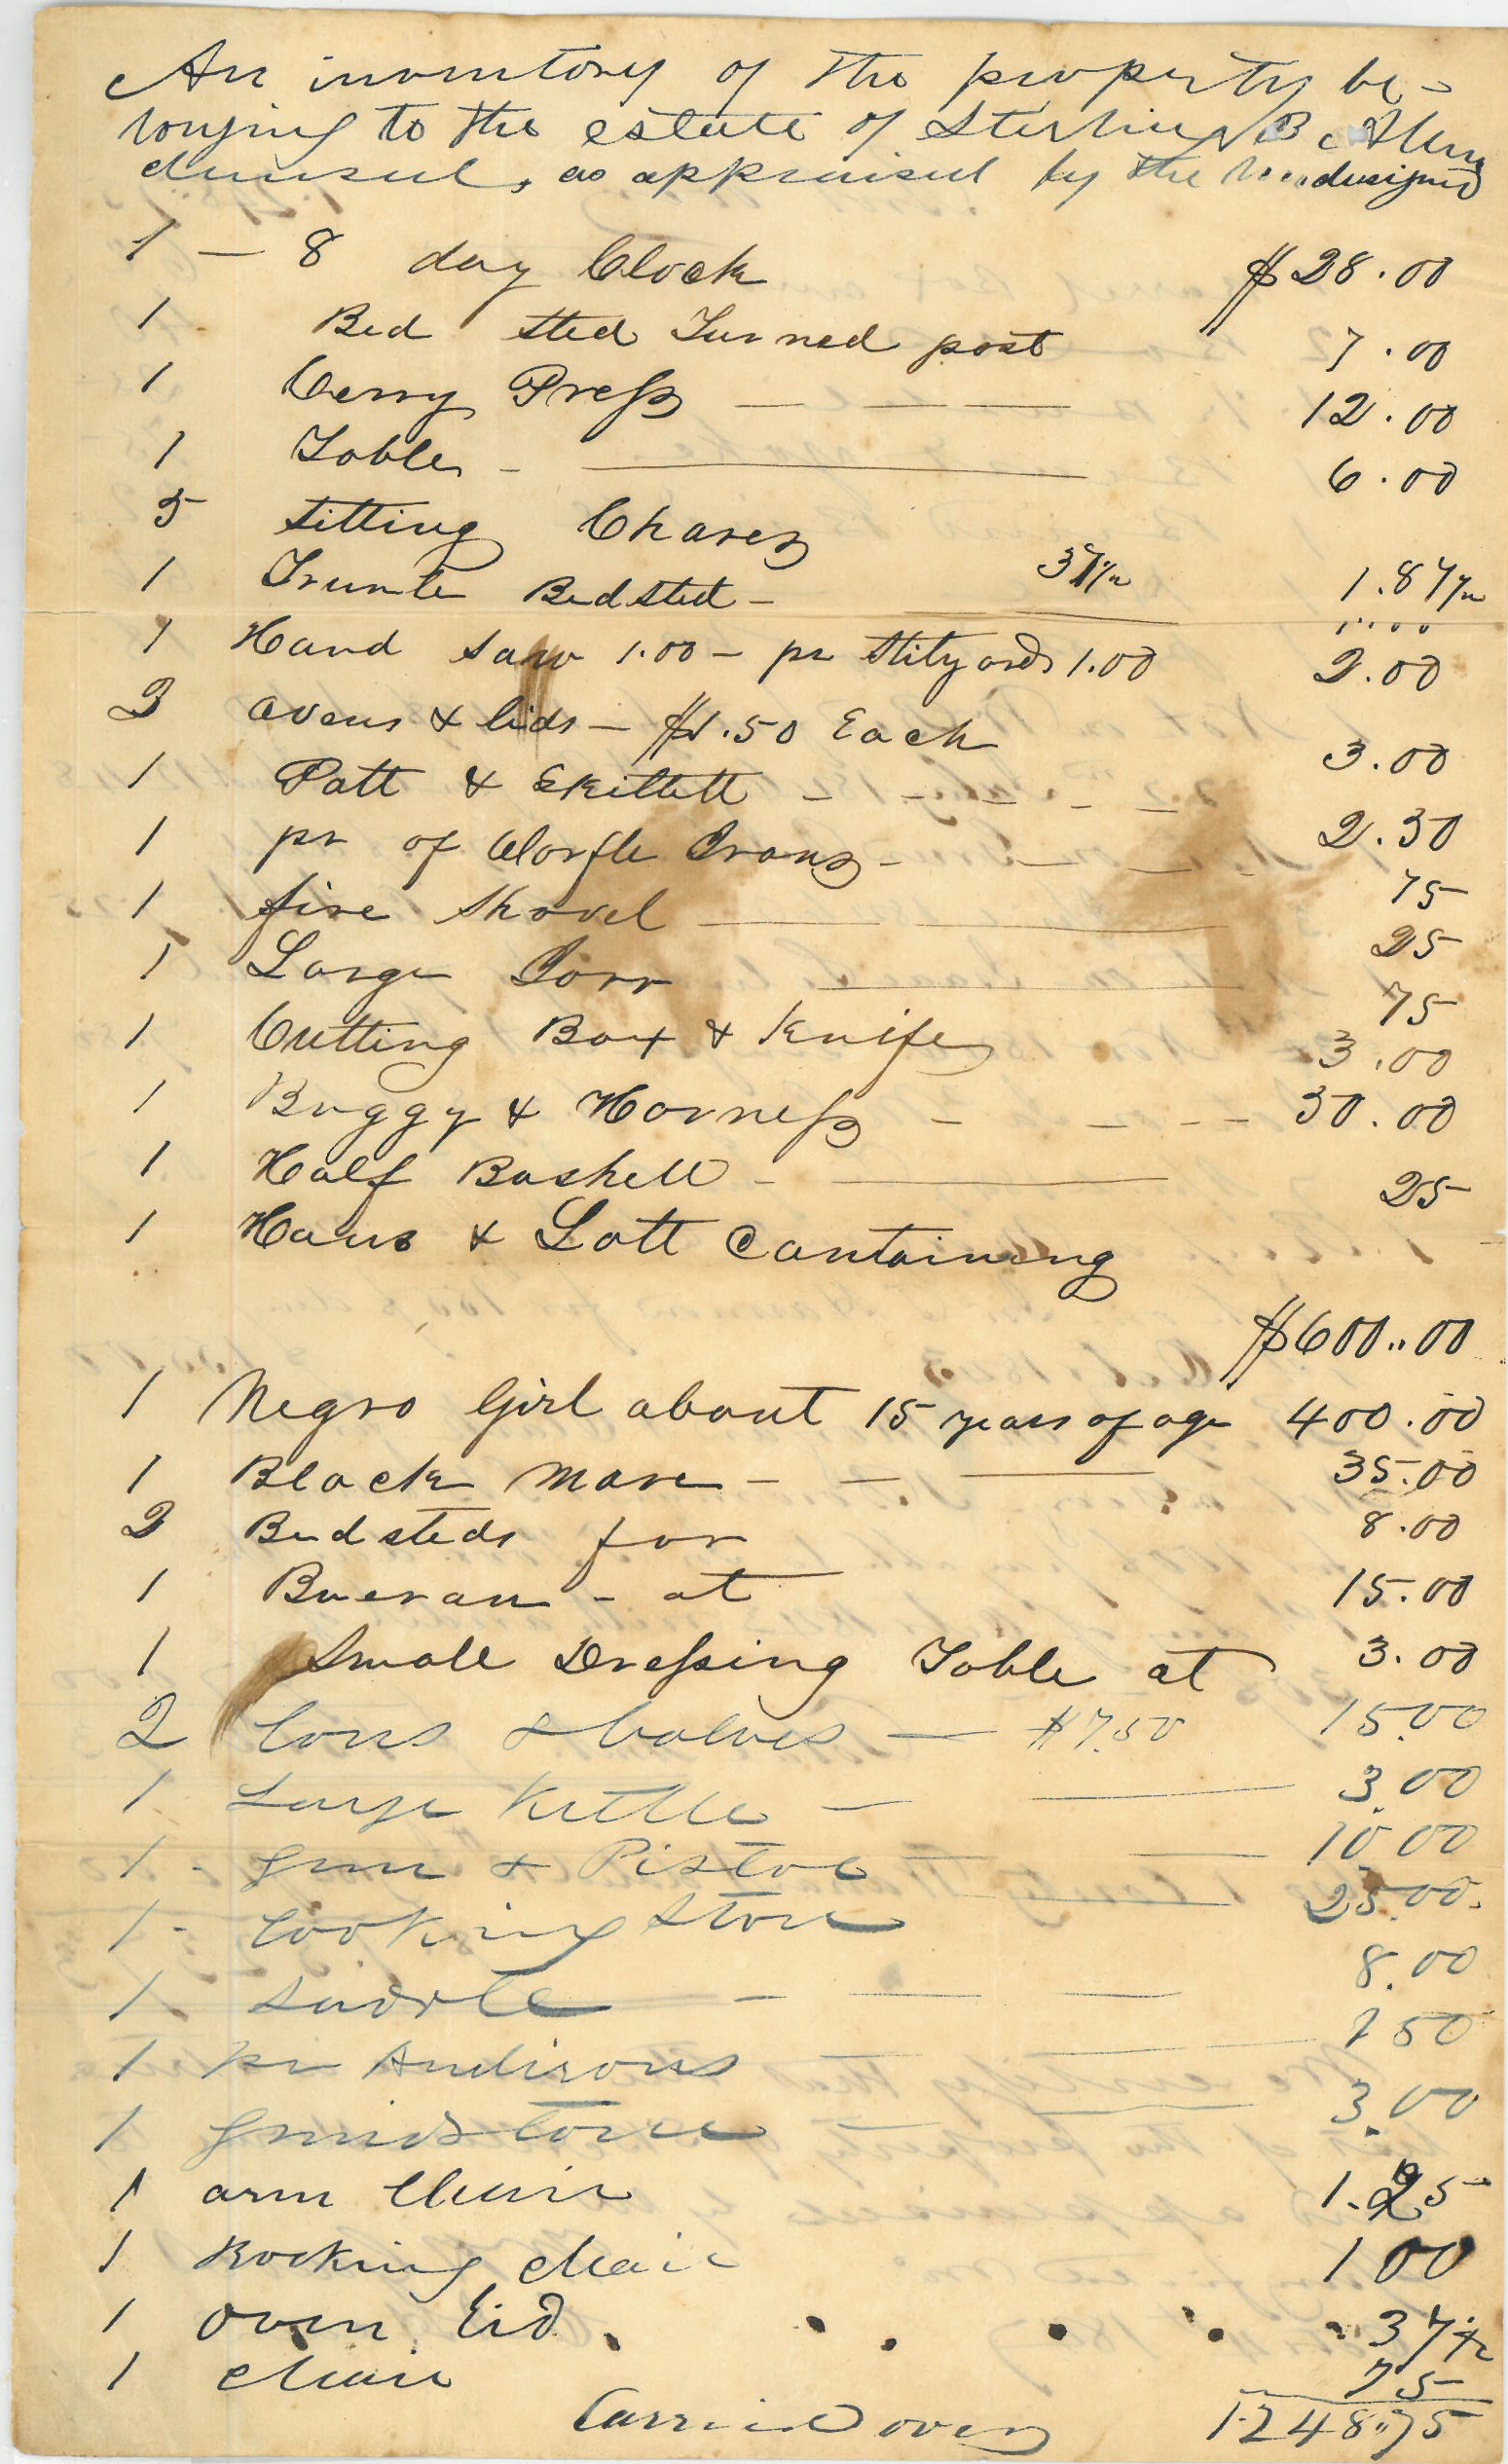 An inventory of the property be-
longing to the estate of Sterling B. Allen
deceased, as appraised by the undersigned
1 — 8 day Clock $28.00
1 Bed sted Turned post 7.00
1 Cerry Press — — — 12.00
1 Table - — 6.00
5 sitting Chares 37½ 1.87½
1 Trunle Bedsted - 1.00
1 Hand saw 1.00 - pr Stilyards 1.00 2.00
2 ovens & lids — $1.50 Each 3.00
1 Pott & Skillett - - - - - 2.50
1 pr of Worfle Irons - — — - 75
1 fire Shovel — 25
1 Large Jorr — 75
1 Cutting Box & Knife 3.00
1 Buggy & Harness - - - - 30.00
1 Half Bushell - — 25
1 Hous & Lott Containing
$600.00
1 Negro Girl about 15 years of age 400.00
1 Black Mare - — — 35.00
2 Bedsteds for 8.00
1 Buerau - at 15.00
1 Small Dressing Table at 3.00
2 Cows & Calves — $7.50 15.00
1 Large Kettle — — 3.00
1 - Gun & Pistol — — 10.00
1 - Cooking Stove — 25.00
1 Saddle - — — 8.00
1 pr Andirons — — 1 50
1 Grindstone — — 3.00
1 arm Chair 1.25
1 Rocking chair 1 00
1 oven Lid . . . . . . 37½
1 chair 75
Carried over 1248.75